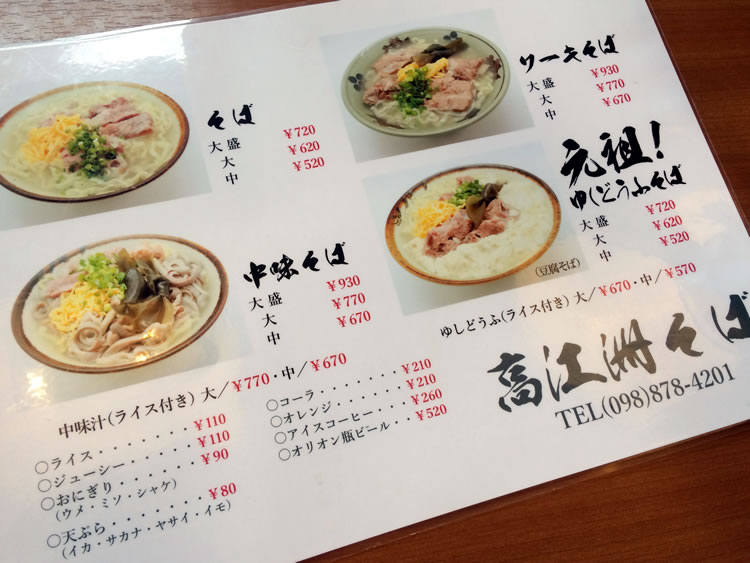 そば
大盛 ¥720
大 ¥620
中 ¥520
ソーキそば
大盛 ¥930
大 ¥770
中 ¥670
中味そば
大盛 ¥930
大 ¥770
中 ¥670
元祖!
ゆしどうふそば
大盛 ¥720
大 ¥620
中 ¥520
(豆腐そば)
中味汁(ライス付き) 大/¥770・中/¥670
ゆしどうふ(ライス付き) 大/¥670・中/¥570
○ライス・・・・・・・¥110
○ジューシー・・・・・¥110
○おにぎり・・・・・・¥90
(ウメ・ミソ・シャケ)
○天ぷら・・・・・・・¥80
(イカ・サカナ・ヤサイ・イモ)
○コーラ・・・・・・・¥210
○オレンジ・・・・・・¥210
○アイスコーヒー・・・¥260
○オリオン瓶ビール・・¥520
高江洲そば
TEL(098)878-4201